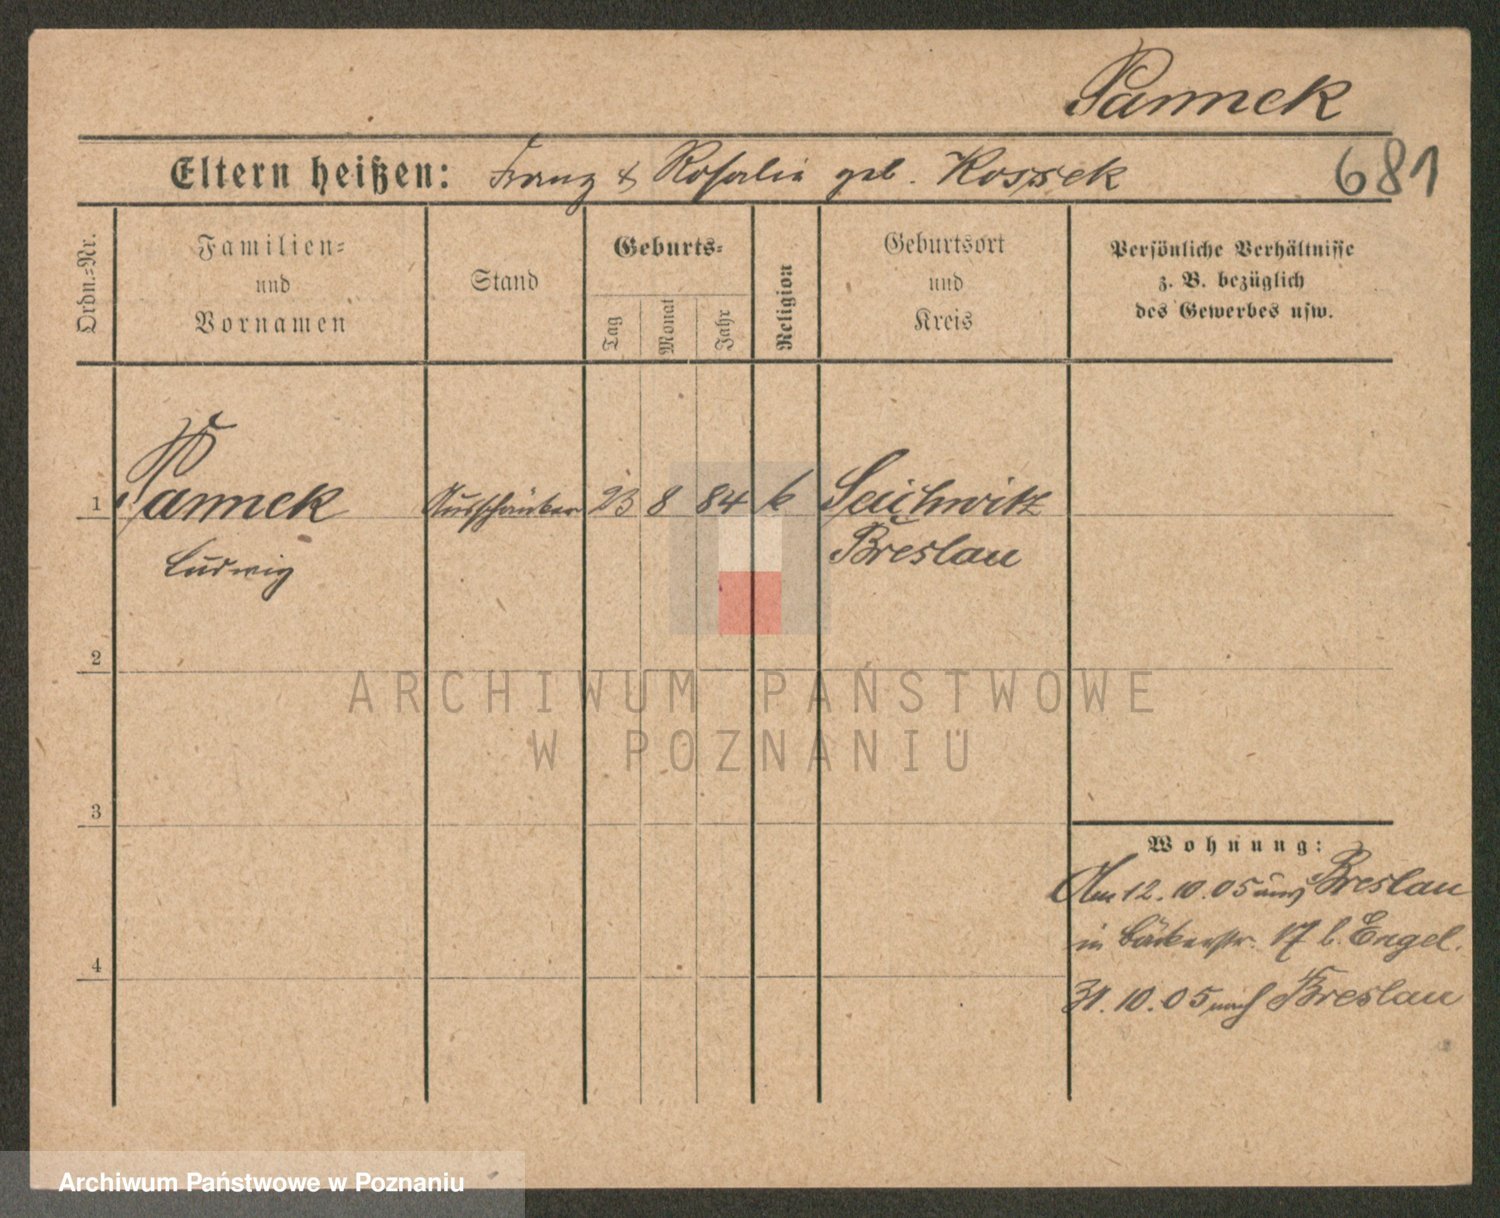 Pannek
Eltern heißen: Franz & Rosalia geb. Kossek
681
Ordn.=Nr.
Familien=
und
Vornamen
Stand
Geburts=
Tag
Monat
Jahr
Religion
Geburtsort
und
Kreis
Persönliche Verhältnisse
z. B. bezüglich
des Gewerbes usw.
1 Pannek 23 8 84 k
Ludwig Breslau
2
3
4
Wohnung:
Am 12.10.05 aus Breslau
in Bäckerstr. 17 b. Engel.
31.10.05 nach Breslau
ARCHIWUM PAŃSTWOWE
W POZNANIU
Archiwum Państwowe w Poznaniu